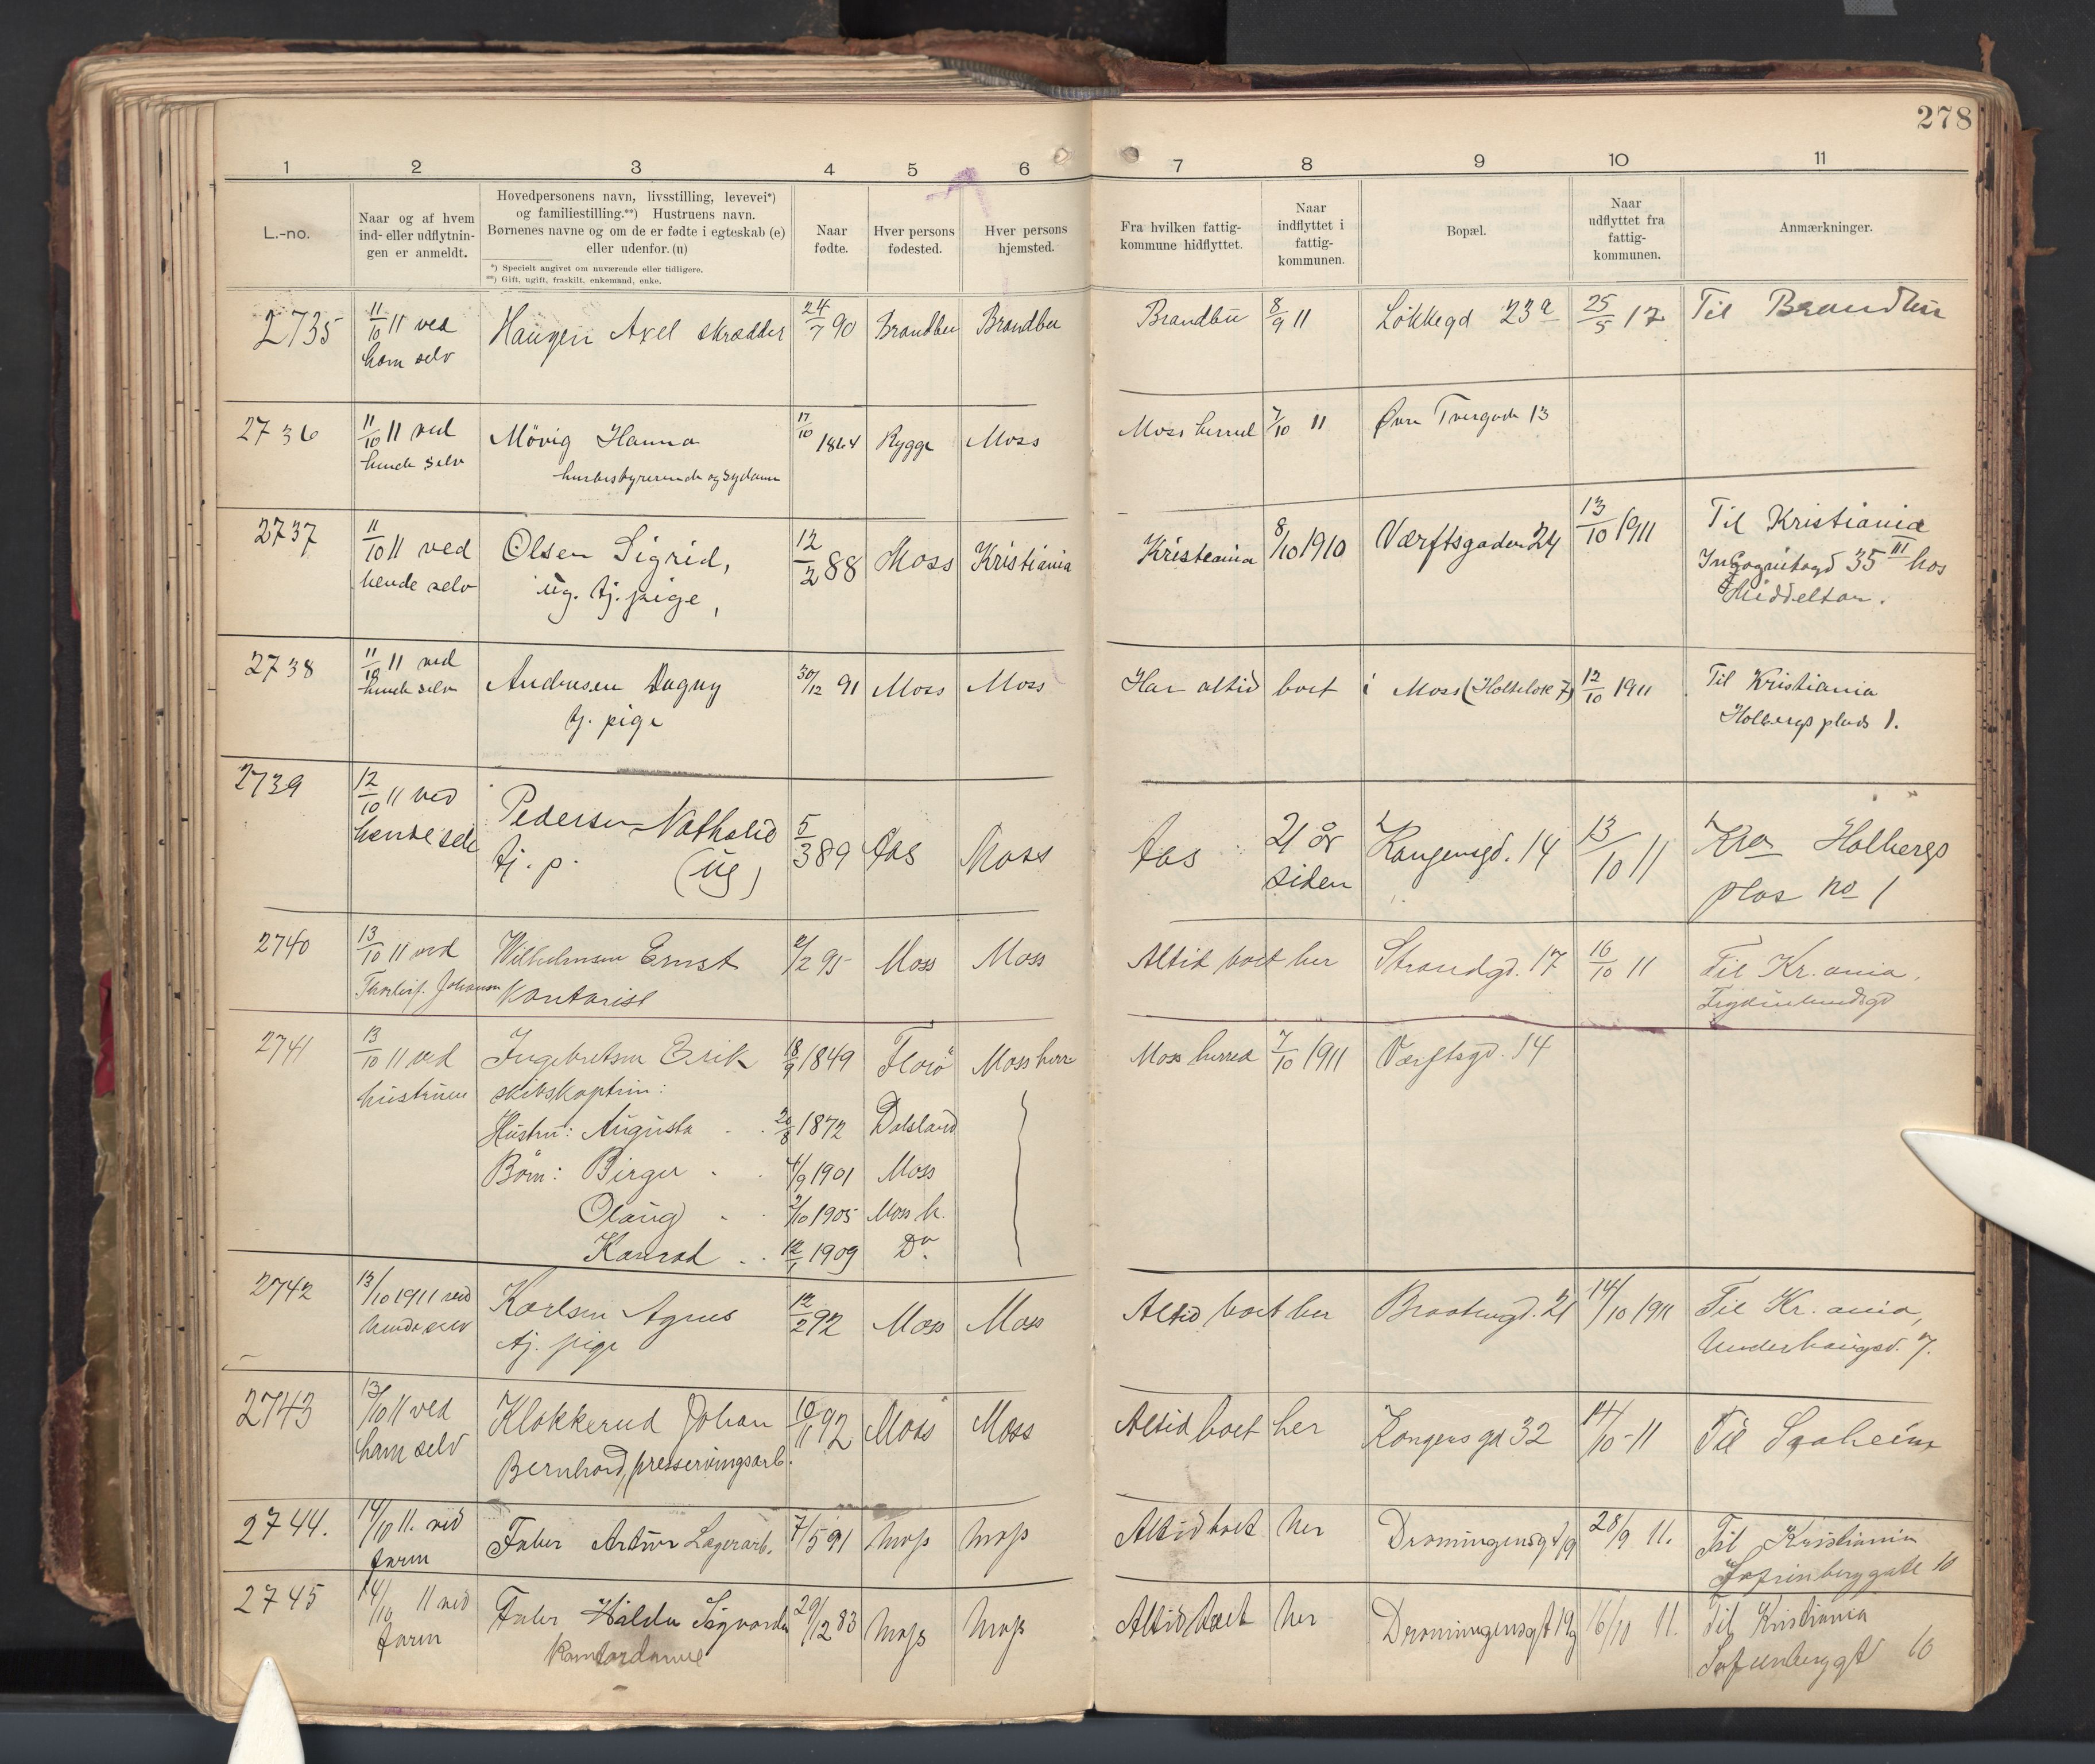 278
1 2 3 4 5 6 7 8 9 10 11
L.-no.
Naar og af hvem
ind- eller udflytnin-
gen er anmeldt.
Hovedpersonens navn, livsstilling, levevei*)
og familiestilling.**) Hustruens navn.
Børnenes navne og om de er fødte i egteskab (e)
eller udenfor. (u)
*) Specielt angivet om nuværende eller tidligere.
**) Gift, ugift, fraskilt, enkemand, enke.
Naar
fødte.
Hver persons
fødested.
Hver persons
hjemsted.
Fra hvilken fattig-
kommune hidflyttet.
Naar
indflyttet i
fattig-
kommunen.
Bopæl.
Naar
udflyttet fra
fattig-
kommunen.
Anmærkninger.
2735 11/10 11 ved Haugen Axel skrædder 24/7 90 Brandbu Brandbu Brandbu 8/9 11 Løkkegd 23a 25/5 17 Til Brandbu
ham selv
2736 11/10 11 ved Mövig Hanna 17/10 1864 Rygge Moss Moss herred 7/10 11 Øvre Tvergade 13
hende selv husbestyrerinde og sydame
2737 11/10 11 ved Olsen Sigrid, 12/2 88 Moss Kristiania Kristiania 8/10 1910 Værftsgaden 24 13/10 1911 Til Kristiania
hende selv ug. tj. pige, Incognitogd 35 III hos
Middelton.
2738 11/10 11 ved Andresen Dagny 30/12 91 Moss Moss Har altid boet i Moss 12/10 1911 Til Kristiania
hende selv tj. pige Holbergs plads 1.
2739 12/10 11 ved Pedersen Nathalie 5/3 89 Aas Moss Aas 21 år Kongensgd. 14 13/10 11 Kra Holbergs
hende selv tj. p. (ug) siden plas no 1
2740 13/10 11 ved Wilhelmsen Ernst 2/2 95 Moss Moss Altid boet her Strandgd. 17 16/10 11 Til Kr.ania.
Johansen Kontorist
2741 13/10 11 ved Ingebretsen Erik 18/9 1849 Florö Moss herr Moss herred 7/10 1911 Værftsgd. 14
hustruen skibskaptein:
Hustru: Augusta 20/8 1872 Dalsland
Börn: Birger 4/9 1901 Moss
Olaug 2/10 1905 Moss h.
Konrad 12/1 1909 Do
2742 13/10 1911 ved Karlsen Agnes 12/2 92 Moss Moss Altid boet her Braatengd. 21 14/10 1911 Til Kr.ania,
hende selv tj. pige Underhaugsv. 7.
2743 13/10 11 ved Klokkerud Johan 10/11 92 Moss Moss Altid boet her Kongens gd 32 14/10-11 Til Saaheim
ham selv Bernhard, presservingsarb.
2744. 14/10 11. ved Faber Artur Lagerarb. 7/5 91 Moss Moss Altid boet her Dronningensgt 19 28/9 11. Til Kristiania
farm Sofienberggate 10
2745 14/10 11 ved Faber Hilda Sigvarda 29/12 83 Moss Moss Altid boet her Dronningensgt 19 16/10 11. Til Kristiania
farm Kontordame Sofienberggt 10